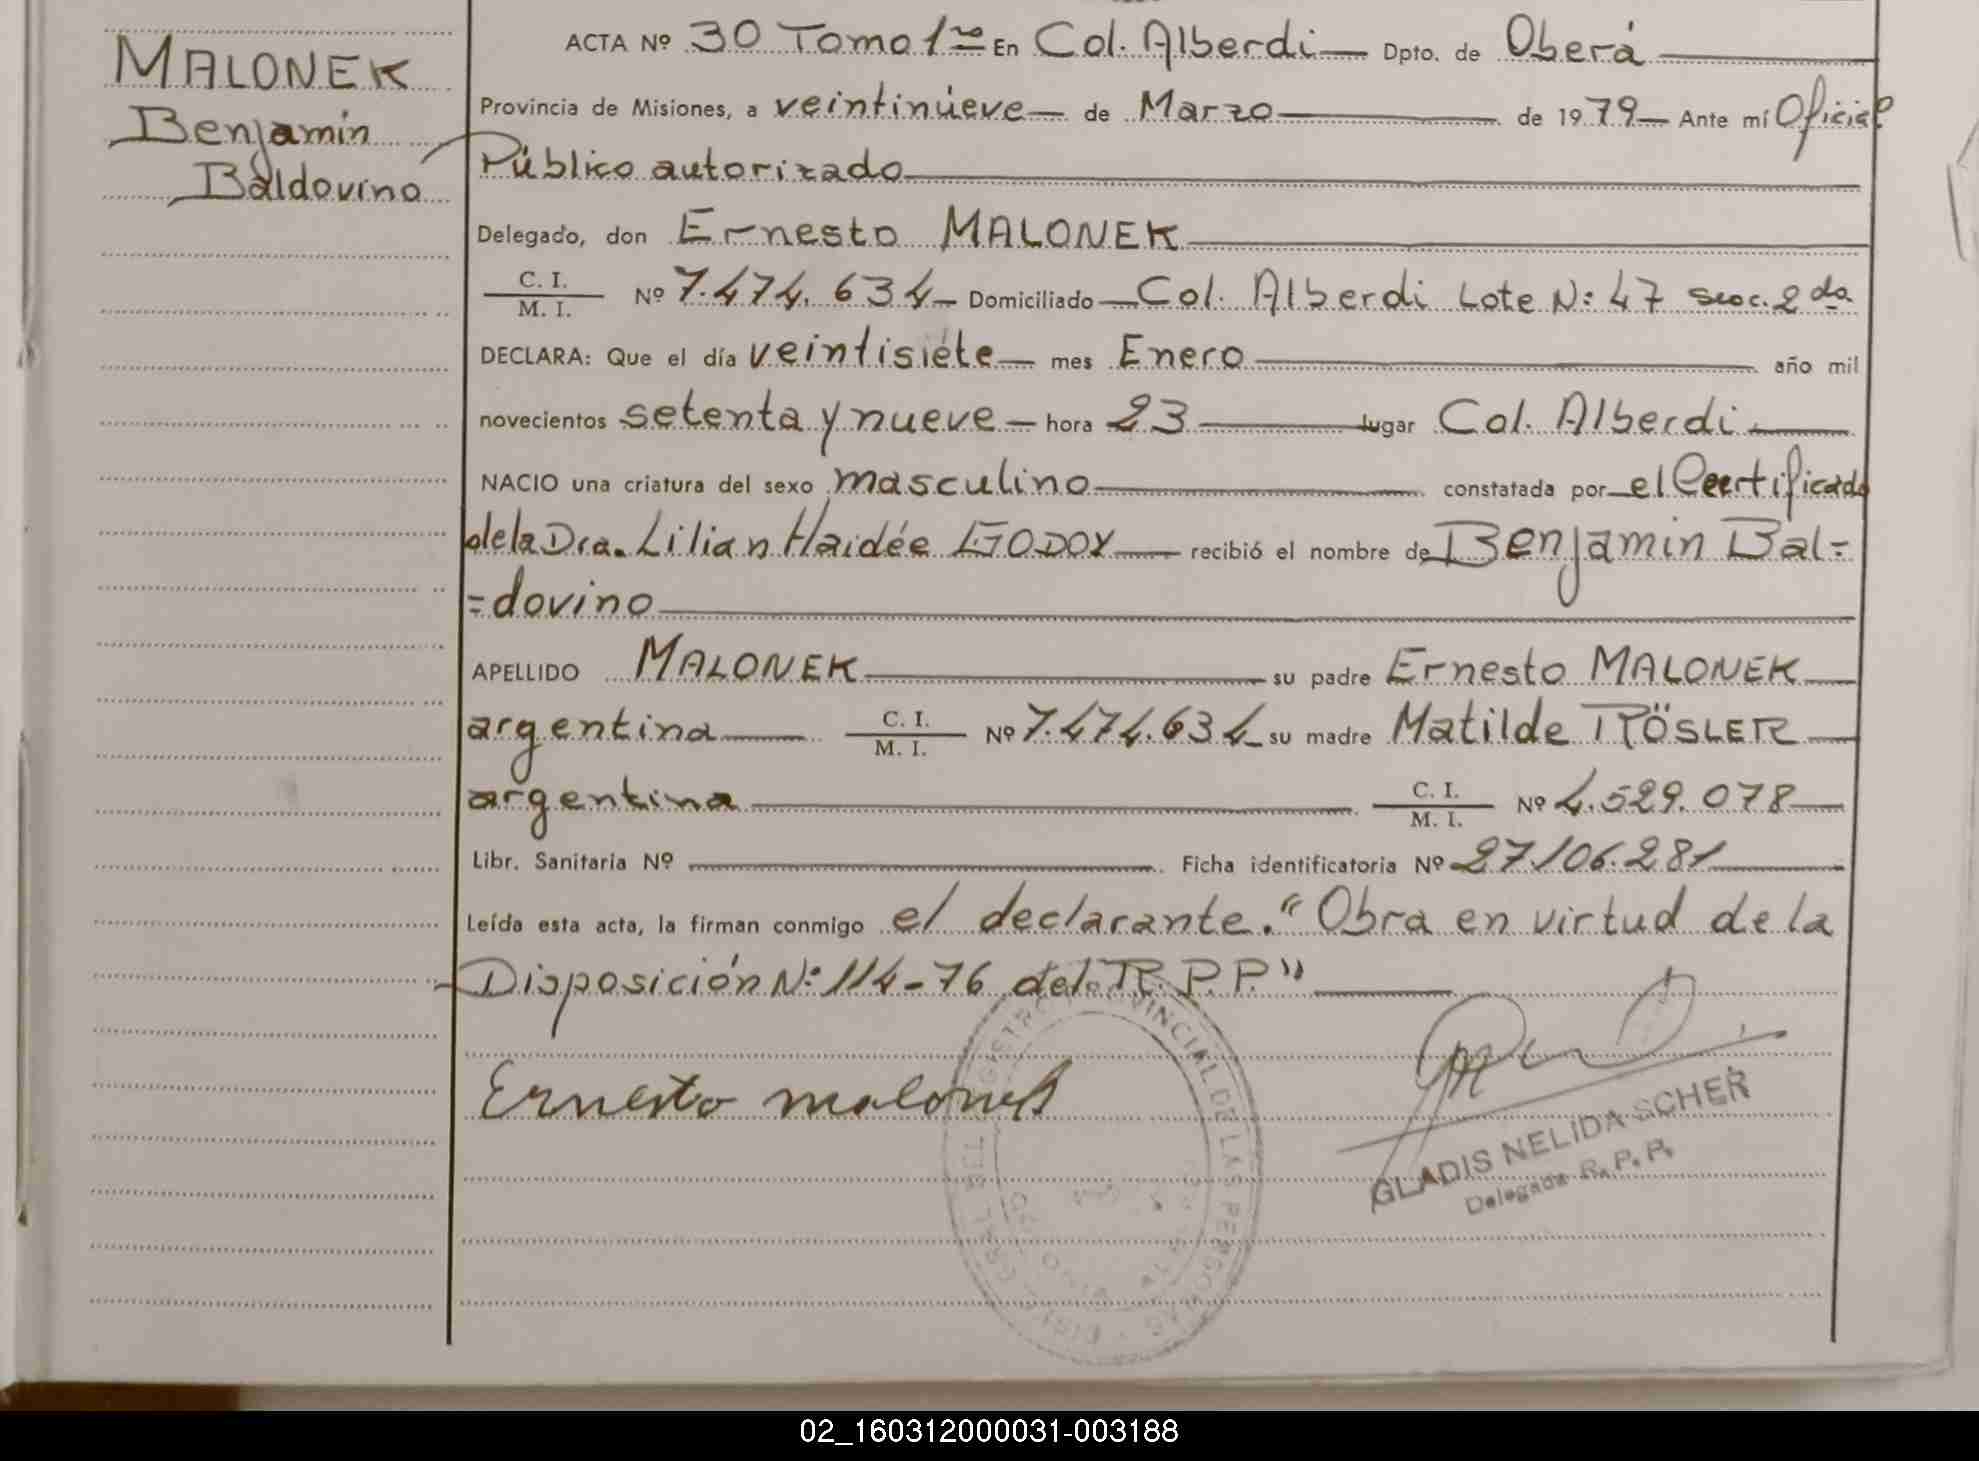 MALONEK
Benjamín
Baldovino
ACTA Nº 30 Tomo 1ro En Col. Alberdi Dpto. de Oberá
Provincia de Misiones, a veintinueve de Marzo de 1979 Ante mí Oficial
Público autorizado
Delegado, don Ernesto MALONEK
C. I.
M. I. Nº 7.474.634 Domiciliado Col. Alberdi Lote N: 47 secc. 2da
DECLARA: Que el día veintisiete mes Enero año mil
novecientos setenta y nueve hora 23 lugar Col. Alberdi
NACIO una criatura del sexo masculino constatada por el Certificado
de la Dra. Lilian Haidée GODOY recibió el nombre de Benjamín Bal=
=dovino
APELLIDO MALONEK su padre Ernesto MALONEK
argentina C. I.
M. I. Nº 7.474.634 su madre Matilde RÖSLER
argentina C. I.
M. I. Nº 4.529.078
Libr. Sanitaria Nº Ficha identificatoria Nº 27.106.281
Leída esta acta, la firman conmigo el declarante. "Obra en virtud de la
Disposición N: 114-76 del R.P.P."
Ernesto malonek
GLADIS NELIDA SCHER
Delegada R. P. P.
02_160312000031-003188